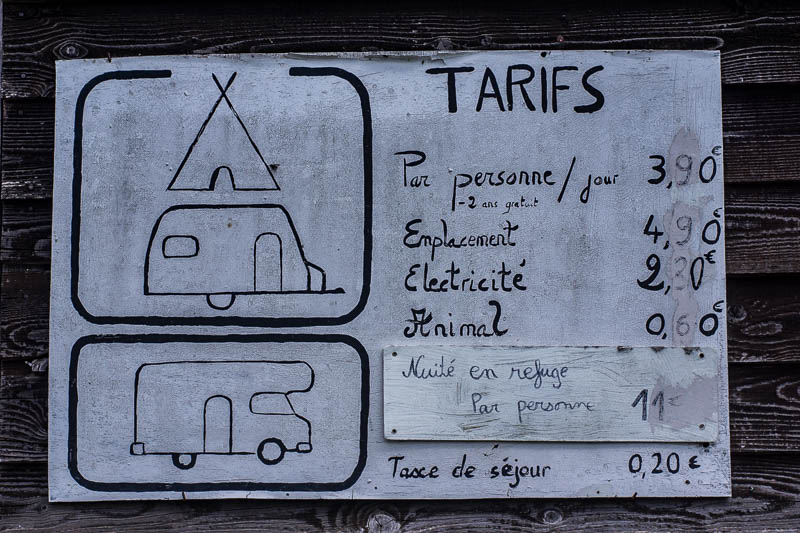 TARIFS
Par personne / jour 3,90€
-2 ans gratuit
Emplacement 4,90€
Electricité 2,30€
Animal 0,60€
Nuité en refuge
Par personne 11€
Taxe de séjour 0,20€